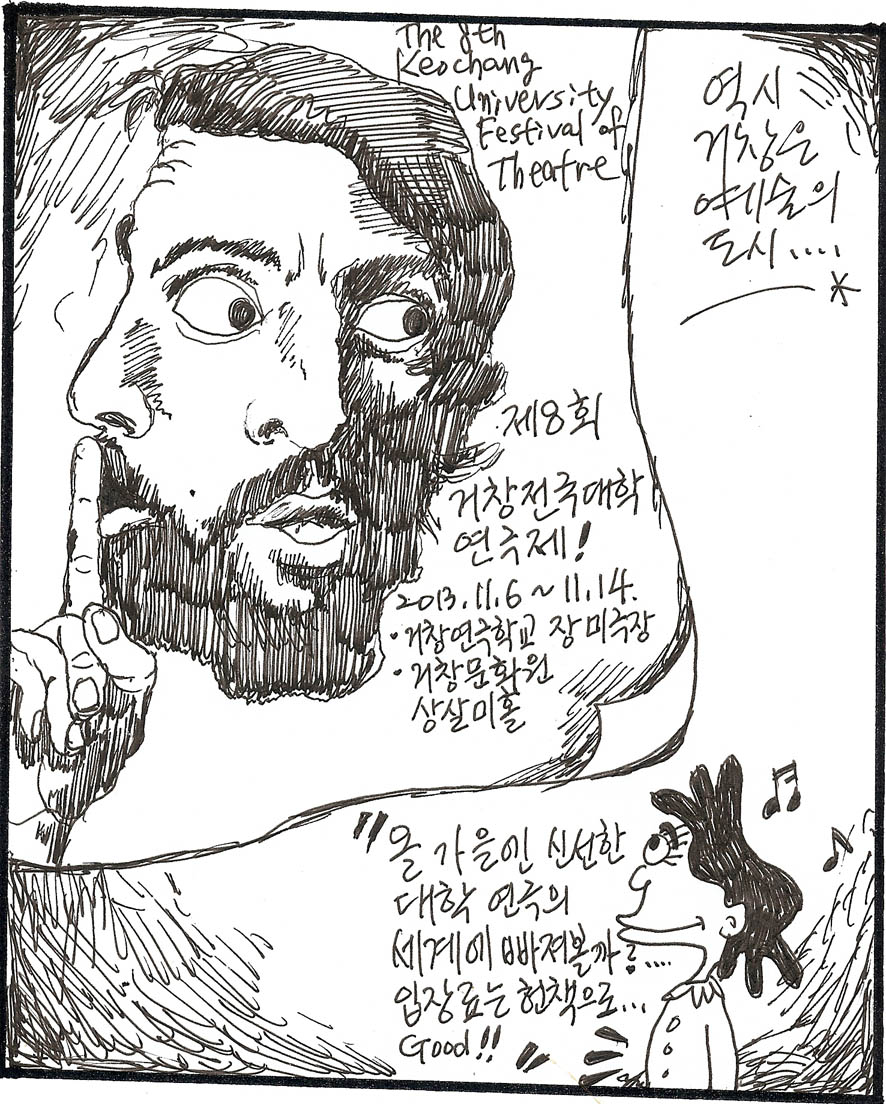 The 8th
Keochang
University
Festival of
Theatre
역시
거창은
예술의
도시....
제8회
거창전국대학
연극제!
2013.11.6 ~ 11.14.
·거창연극학교 장미극장
·거창문화원
상살미홀
"올 가을엔 신선한
대학 연극의
세계에 빠져볼까?....
입장료는 헌책으로...
Good!!"